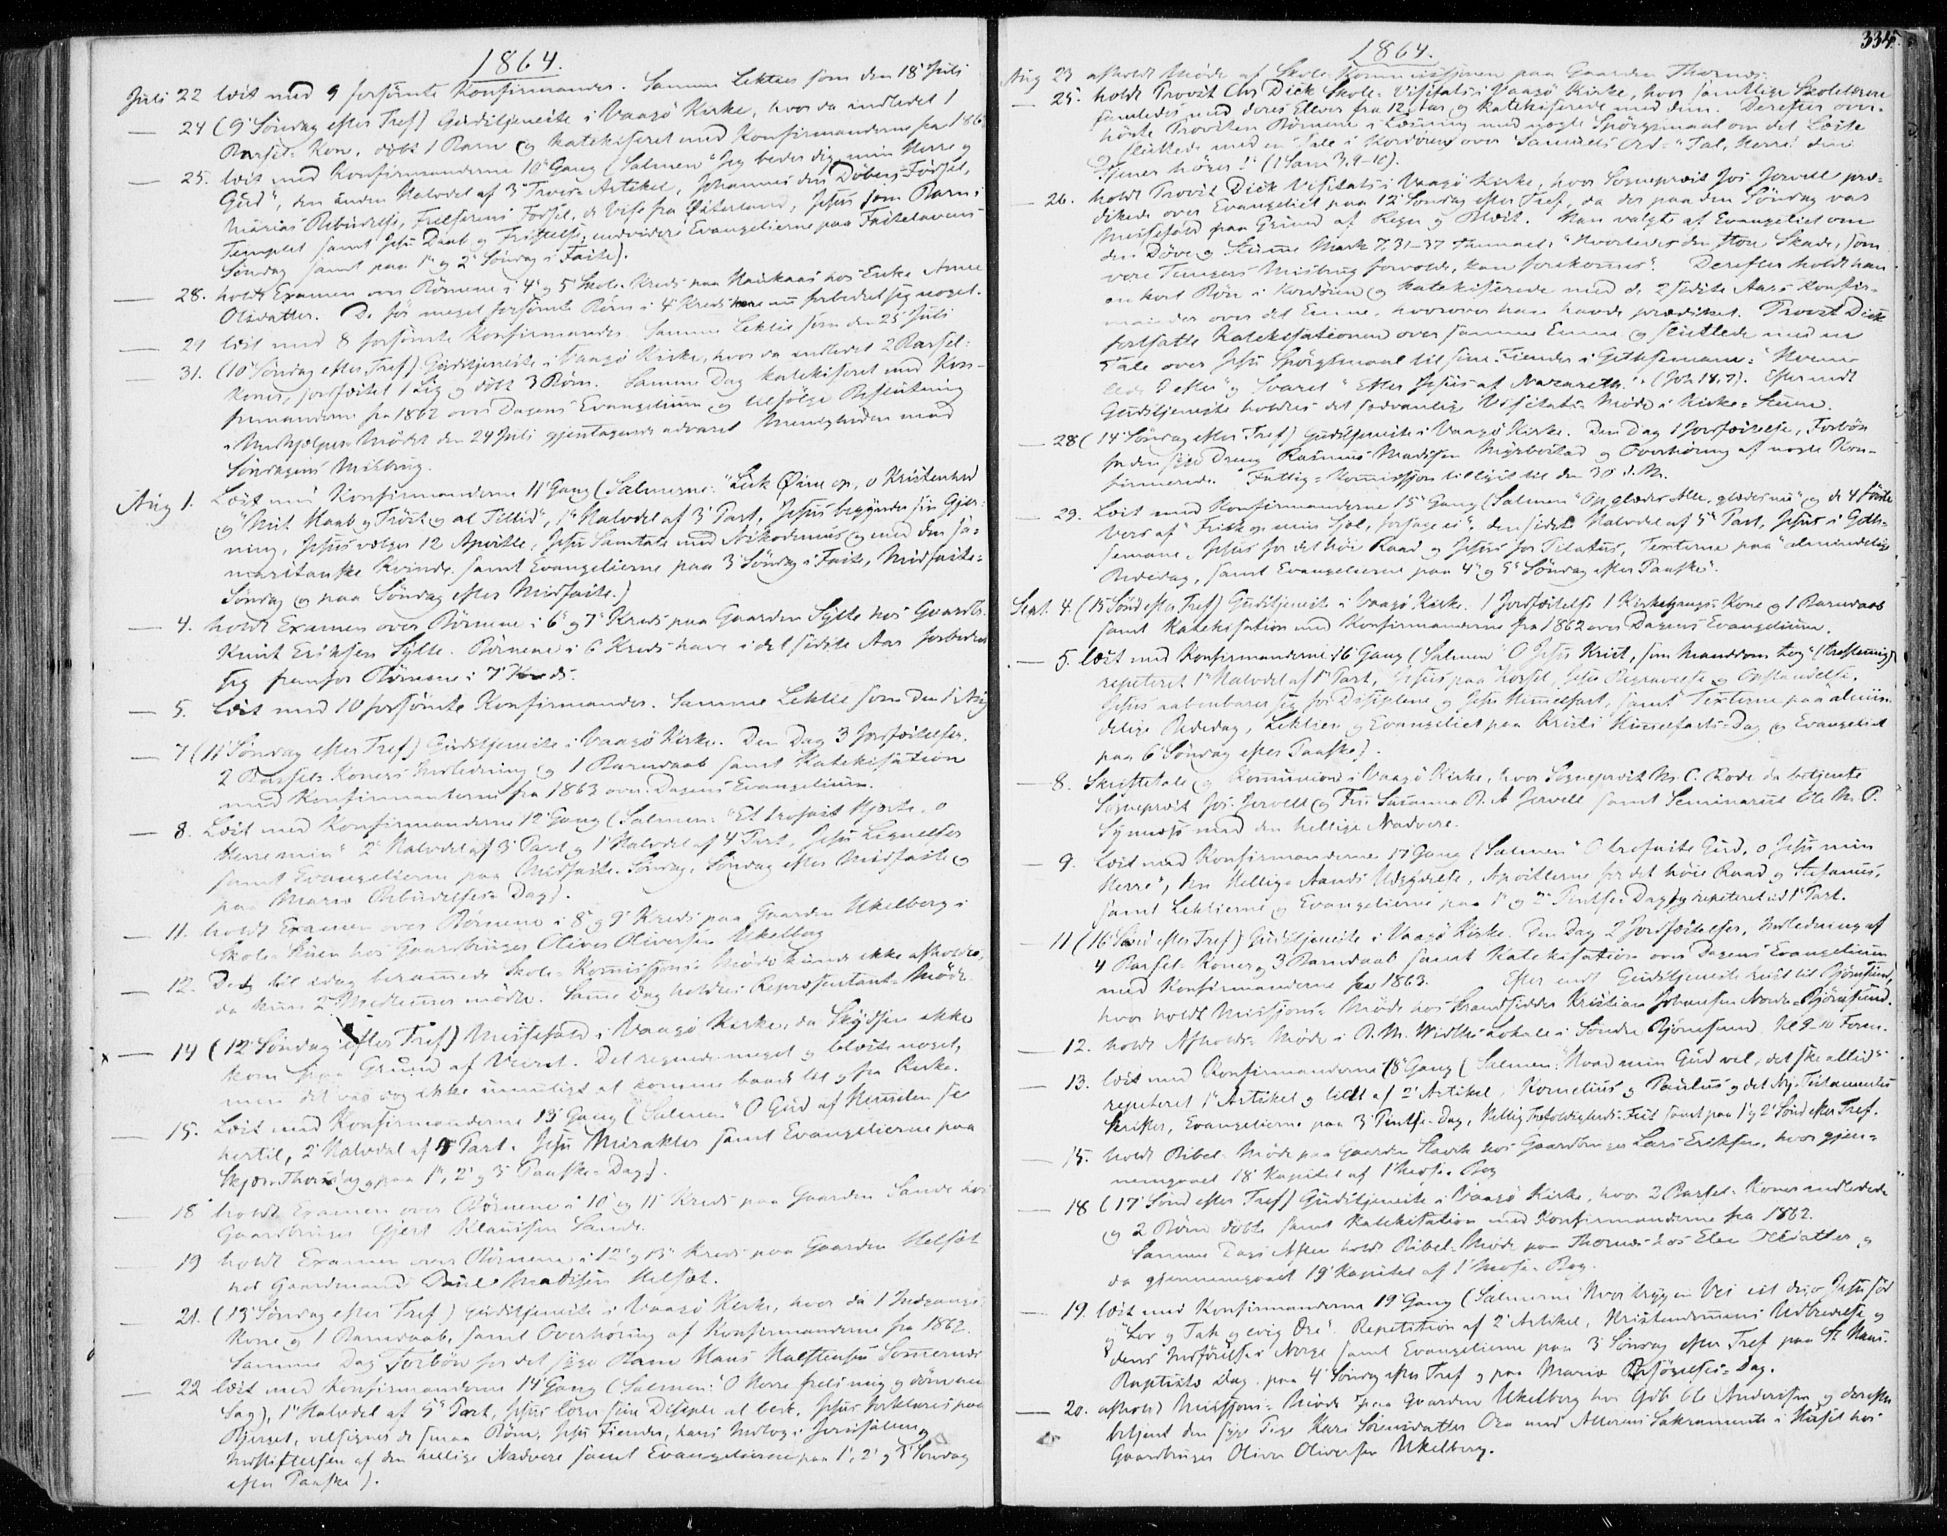 1864.
Juli 22 læst med 9 forsömte Konfirmander. Samme Lektie som den 18 Juli
— 24 (9' Söndag efter Tref) Gudstjeneste i Vaagö Kirke, hvor da indledet 1
Barsel-Kone, döbt 1 Barn og katekiseret med Konfirmanderne fra 186
— 25. læst med Konfirmanderne 10' Gang (Salmen "Jeg beder dig, min Herre og
Gud", den anden Halvdel af 3' Troes-Artikel, Johannes den Döbers Födsel,
Marias Bebudelse, Frelserens Födsel, de Vise fra Österland, Jesus som Barn i
Templet samt Jesu Daab og Fristelse, endvidere Evangelierne paa Fastelavens
Söndag samt paa 1' og 2' Söndag i Faste).
— 28. holdt Examen over Börnene i 4' og 5' Skole-Kreds paa Haukaas hos Enke Anne
Olsdatter. De för meget forsömte Börn i 4' Kreds have nu forbedret sig noget.
— 29 læst med 8 forsömte Konfirmander. Samme Lektie som den 25' Juli
— 31. (10' Söndag efter Tref) Gudstjeneste i Vaagö Kirke, hvor da indledet 2 Barsel-
Koner, jordfæstet 1 Lig og döbt 3 Börn. Samme Dag katekiseret med Kon-
firmanderne fra 1862 over Dagens Evangelium og tilfölge Beslutning
i Medhjælper-Mödet den 24 Juli gjentagende advaret Menigheden mod
Söndagens Misbrug.
Aug 1. Læst med Konfirmanderne 11' Gang (Salmerne: "Luk Öine op, o Kristenhed
og "Mit Haab og Tröst og al Tillid", 1' Halvdel af 3' Part, Jesus begynder sin Gjer-
ning, Jesus vælger 12 Apostle, Jesu Samtale med Nikodemus og med den sa-
maritanske Kvinde samt Evangelierne paa 3' Söndag i Faste, Midfaste-
Söndag og paa Söndag efter Midfaste.)
— 4. holdt Examen over Börnene i 6' og 7' Kreds paa Gaarden Sylte hos Gaardb.
Knut Eriksen Sylte. Börnene i 6 Kreds have i det sidste Aar forbedret
sig fremfor Börnene i 7' Kreds.
— 5. Læst med 10 forsömte Konfirmander. Samme Lektie som den 1' Aug
— 7 (11' Söndag efter Tref) Gudstjeneste i Vaagö Kirke. Den Dag 3 Jordfæstelser,
2 Barsel-Koners Indledning og 1 Barnedaab samt Katekisation
med Konfirmanterne fra 1863 over Dagens Evangelium.
— 8. Læst med Konfirmanderne 12' Gang (Salmen: "Et trofast Hjerte, o
Herre min" 2' Halvdel af 3' Part og 1' Halvdel af 4' Part, Jesu Lignelser
samt Evangelierne paa Midfaste-Söndag, Söndag efter Midfaste og
paa Mariæ Bebudelses-Dag).
— 11. holdt Examen over Börnene i 8' og 9' Kreds paa Gaarden Ukelberg i
Skole-Stuen hos Gaardbruger Oliver Oliversen Ukelberg
— 12. Det til idag berammede Skole-Kommissjons Möde kunde ikke afholdes,
da kun 2 Medlemmer mödte. Samme Dag holdtes Repræsentant-Möde
— 14 (12' Söndag efter Tref) Messefald i Vaagö Kirke, da Skydsen ikke
kom paa Grund af Veiret. Det regnede meget og blæste noget,
men det var dog ikke umuligt at komme baade til og fra Kirke.
— 15. Læst med Konfirmanderne 13' Gang ("Salmen" O Gud af Himmelen se
hertil, 2' Halvdel af 4' Part. Jesu Mirakler samt Evangelierne paa
Skjær-Thorsdag, paa 1', 2' og 3' Paaske-Dag).
— 18 holdt Examen over Börnene i 10' og 11' Kreds paa Gaarden Sande hos
Gaardbruger Gjert Klausen Sande.
— 19 holdt Examen over Börnene i 12' og 13' Kreds paa Gaarden Helset
hos Gaardmand Daniel Madsen Helset.
— 21. (13' Söndag efter Tref) Gudstjeneste i Vaagö Kirke, hvor da 1 Indgangs-
Kone og 1 Barnedaab, samt Overhöring af Konfirmanderne fra 1862.
Samme Dag Forbön for det syge Barn Hans Halstensen Sommernes
— 22 læst med Konfirmanderne 14' Gang (Salmen: "O Herre frels mig og döm min
Sag), 1' Halvdel af 5' Part, Jesus lærer sine Disiple at bede, Jesus forklares paa
Bjerget, velsigner de smaa Börn, Jesu Fiender, hans Indtog i Jerusalem,
Indstiftelsen af den hellige Nadvere samt Evangelierne paa 1', 2' og 3' Söndag
efter Paaske).
334.
1864.
Aug 23 afholdt Möde af Skole-Kommissionen paa Gaarden Thornes.
— 25. holdt Provst Chr Dick Skole-Visitats i Vaagö Kirke, hvor samtlige Skolelærere
samledes med deres Elever fra 12 Aar og katekiserede med dem. Derefter over-
hörte Provsten Börnene i Læsning med nogle Spörgsmaal om det Læste
og sluttede med en Tale i Kordören over Samuels Ord: "Tal, Herre! din
Tjener hörer!" (1 Sam 3,9-10).
— 26. holdt Provst Dick Visitats i Vaagö Kirke, hvor Sognepræst Jos Jervell præ-
dikede over Evangeliet paa 12' Söndag efter Tref, da der paa den Söndag var
Messefald paa Grund af Regn og Blæst. Han valgte af Evangeliet om
den Döve og Stumme Mark 7,31-37 Themaet: "Hvorledes den store Skade, som
vore Tungers Misbrug forvolde, kan forekomes". Derefter holdt han
en kort Bön i Kordören og katekiserede med de 2 sidste Aars Konfir-
mander over det Emne, hvorover han havde prædiket. Provst Dick
fortsatte Katekisationen over samme Emne og sluttede med en
Tale over Jesu Spörgsmaal til sine Fiender i Gethsemane: "Hvem
lede I efter" og Svaret "Efter Jesus af Nazareth." (Joh 18,7). Efter endt
Gudstjeneste holdtes det sædvanlige Visitats-Möde i Kirke-Stuen.
— 28 (14' Söndag efter Tref) Gudstjeneste i Vaagö Kirke. Den Dag 1 Jordfæstelse, Forbön
for den syge Dreng Rasmus Madsen Myrbostad og Overhöring af nogle Kon-
firmerede. Fattig-Kommission tillyst til den 30 d. M.
— 29. Læst med Konfirmanderne 15' Gang (Salmen "Op glædes Alle, glædes nu" og de 4 förste
Vers af "Frisk op min Sjæl, forsage ei", den sidste Halvdel af 5' Part, Jesus i Geth-
semane, Jesus for det höie Raad og Jesus for Pilatus, Texterne paa "almindelig
Bededag, samt Evangelierne paa 4' og 5' Söndag efter Paaske".
Sept. 4. (15' Sönd efter Tref) Gudstjeneste i Vaagö Kirke. 1 Jordfæstelse 1 Kirkegangs-Kone og 1 Barnedaab
samt Katekisation med Konfirmanderne fra 1862 over Dagens Evangelium.
— 5. læst med Konfirmanderne 16' Gang (Salmen "O Jesus Krist, som Manddom tog" (trestemmig)
repeteret 1' Halvdel af 1' Part, Jesus paa Korset, Jesu Begravelse og Opstandelse,
Jesus aabenbarer sig for Disiplene og Jesu Himmelfart, samt Texterne paa "almin-
delige Bededag, Lektien og Evangeliet paa Kristi Himmelfarts-Dag og Evangeliet
paa 6' Söndag efter Paaske).
— 8. Skriftetale og Kommunion i Vaagö Kirke, hvor Sognepræst M. C. Rode da betjente
Sognepræst Jos. Jervell og Fru Susanna B. A Jervell samt Seminarist Ole M. P.
Synnæs med den hellige Nadvere.
— 9. læst med Konfirmanderne 17' Gang (Salmen "O trofaste Gud, o Jesu min
Herre", Den Hellige Aands Udgydelse, Apostlerne for det höie Raad og Stefanus,
samt Lektierne og Evangelierne paa 1' og 2' Pintse-Dag) og repeteret ud 1' Part.
— 11 (16' Sönd efter Tref) Gudstjeneste i Vaagö Kirke. Den Dag 2 Jordfæstelser, Indledning af
4 Barsel-Koner og 3 Barnedaab samt Katekisation over Dagens Evangelium
med Konfirmanderne fra 1863. Efter endt Gudstjeneste reist til Björnsund,
hvor holdt Missjons-Möde hos Strandsidder Kristian Johansen Nordre-Björnsund.
— 12. holdt Afholds-Möde i B. M. Widths Lokale i Söndre Björnesund Kl 9-10 Form.
— 13. læst med Konfirmanderne 18' Gang (Salmen: "Hvad min Gud vil, det ske altid"
repeteret 1' Artikel og lidt af 2' Artikel, Kornelius og Paulus og det Ny Testamentes
Skrifter, Evangelierne paa 3' Pintse-Dag, Hellig Trefoldigheds-Fest samt paa 1' og 2' Sönd efter Tref.
— 15. holdt Bibel-Möde paa Gaarden Stavik hos Gaardbruger Lars Eriksen, hvor gjen-
nemgaaet 18' Kapitel af 1' Mose-Bog
— 18 (17' Sönd efter Tref) Gudstjeneste i Vaagö Kirke, hvor 2 Barsel-Koner indlededes
og 2 Börn döbte samt Katekisation med Konfirmanderne fra 1862.
Samme Dags Aften holdt Bibel-Möde paa Thornes hos Elen Olsdatter og
da gjennemgaaet 19' Kapitel af 1' Mose-Bog.
— 19. læst med Konfirmanderne 19' Gang (Salmerne "Hvor trygge Vei est du, o Jesu sød
og "Lov og Tak og evig Ære". Repetition af 2' Artikel, Kristendommens Udbredelse og
dens Indförelse i Norge samt Evangelierne paa 3' Söndag efter Tref paa St Hans-
Baptistæ Dag, paa 4' Söndag efter Tref og paa Mariæ Besögelses-Dag.
— 20. afholdt Missjons-Möde paa Gaarden Ukelberg hos Gdb Ole Andersen og derefter
betjent den syge Pige Kari Sörensdatter Ora med Alterens Sakramente i Huset hos
Gaardbruger Oliver Oliversen Ukelberg.